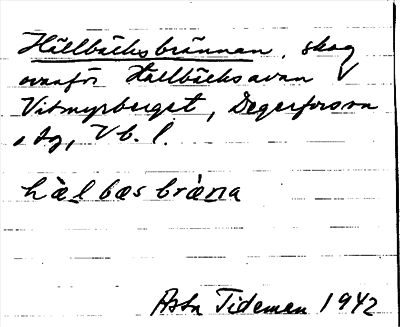 Hällbäcksbrännan, skog
ovanför Hällbäcksavan
Vitmyrberget, Degerfors sn
, Vb. l.
hälbæsbræna
Asta Tideman 1942